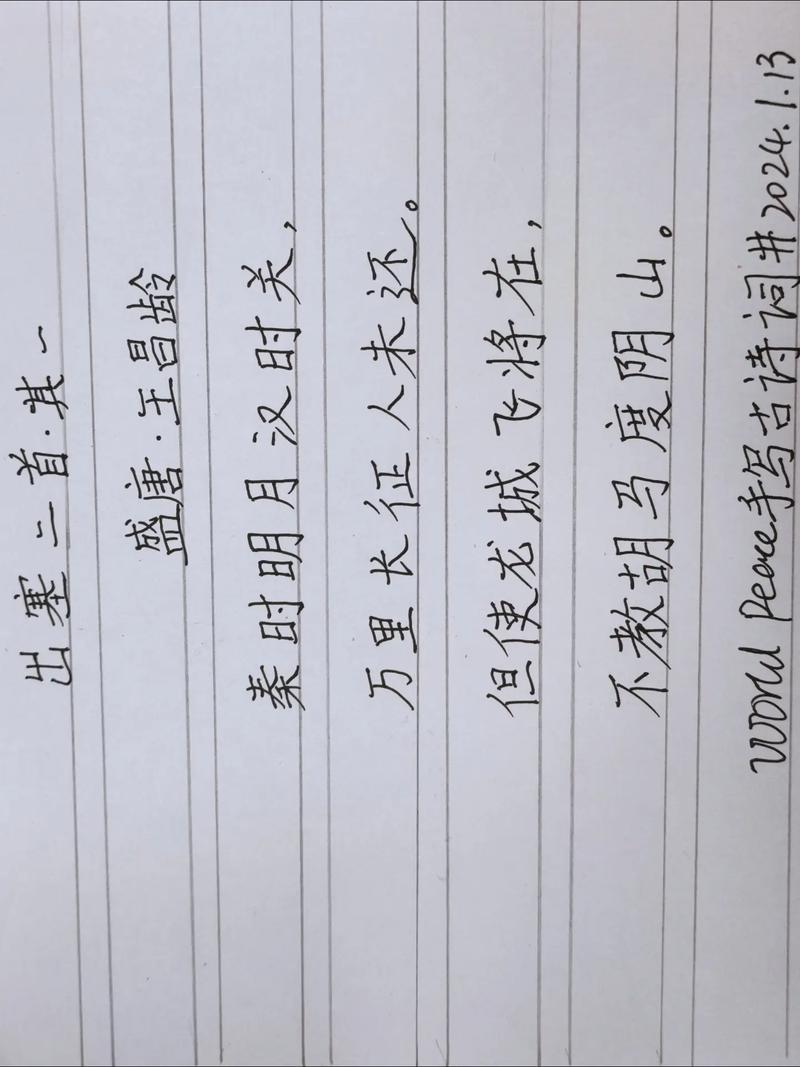 出塞二首·其一
盛唐·王昌龄
秦时明月汉时关，
万里长征人未还。
但使龙城飞将在，
不教胡马度阴山。
World Peace手写古诗词#2024.1.13